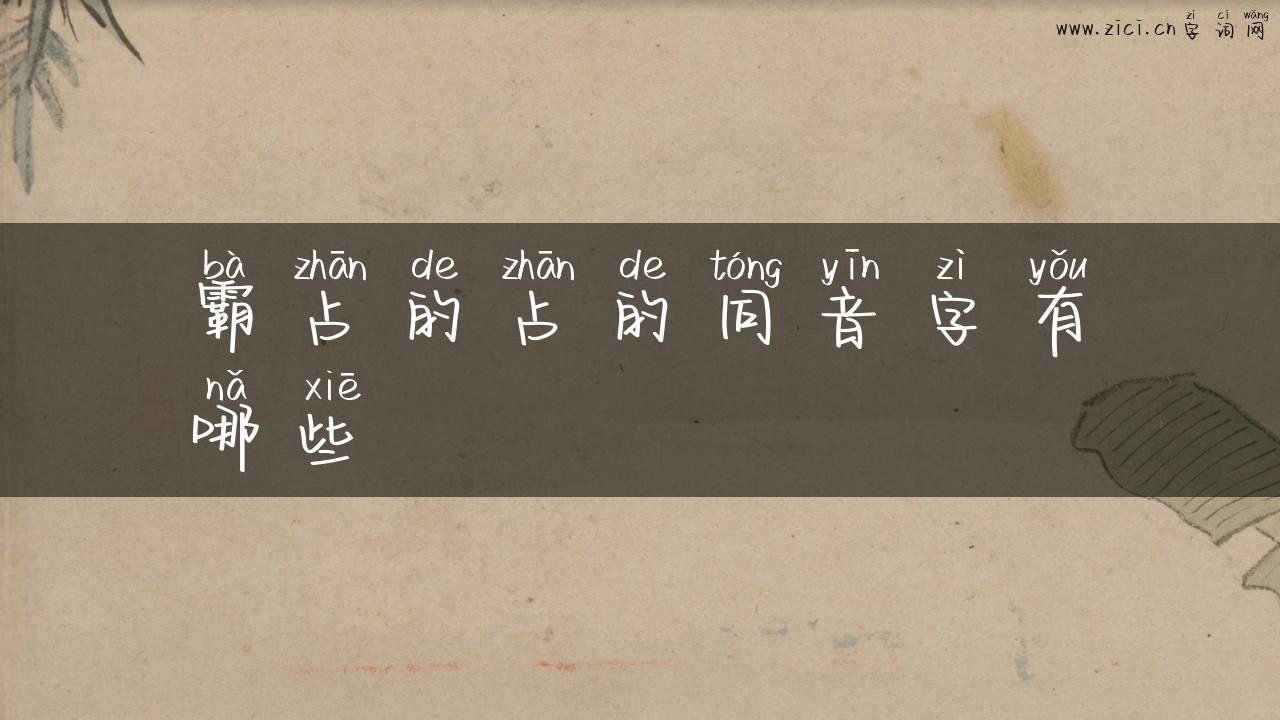 zì cí wǎng
www.zici.cn 字词网
bà zhān de zhān de tóng yīn zì yǒu
霸占的占的同音字有
nǎ xiē
哪些